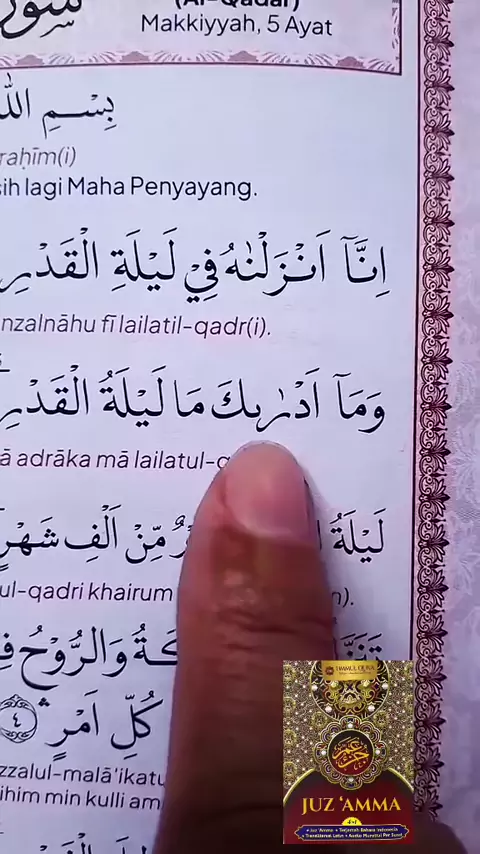 (Al-Qadar)
Makkiyyah, 5 Ayat
بِسْمِ اللّٰ
raḥīm(i)
sih lagi Maha Penyayang.
اِنَّآ اَنْزَلْنٰهُ فِيْ لَيْلَةِ الْقَدْرِ
nzalnāhu fī lailatil-qadr(i).
وَمَآ اَدْرٰىكَ مَا لَيْلَةُ الْقَدْرِ
ā adrāka mā lailatul-q
لَيْلَةُ مِّنْ اَلْفِ شَهْرٍ
ul-qadri khairum
وَالرُّوْحُ
كُلِّ اَمْرٍ ٤
zzalul-malā'ikatu
ihim min kulli am
JUZ 'AMMA